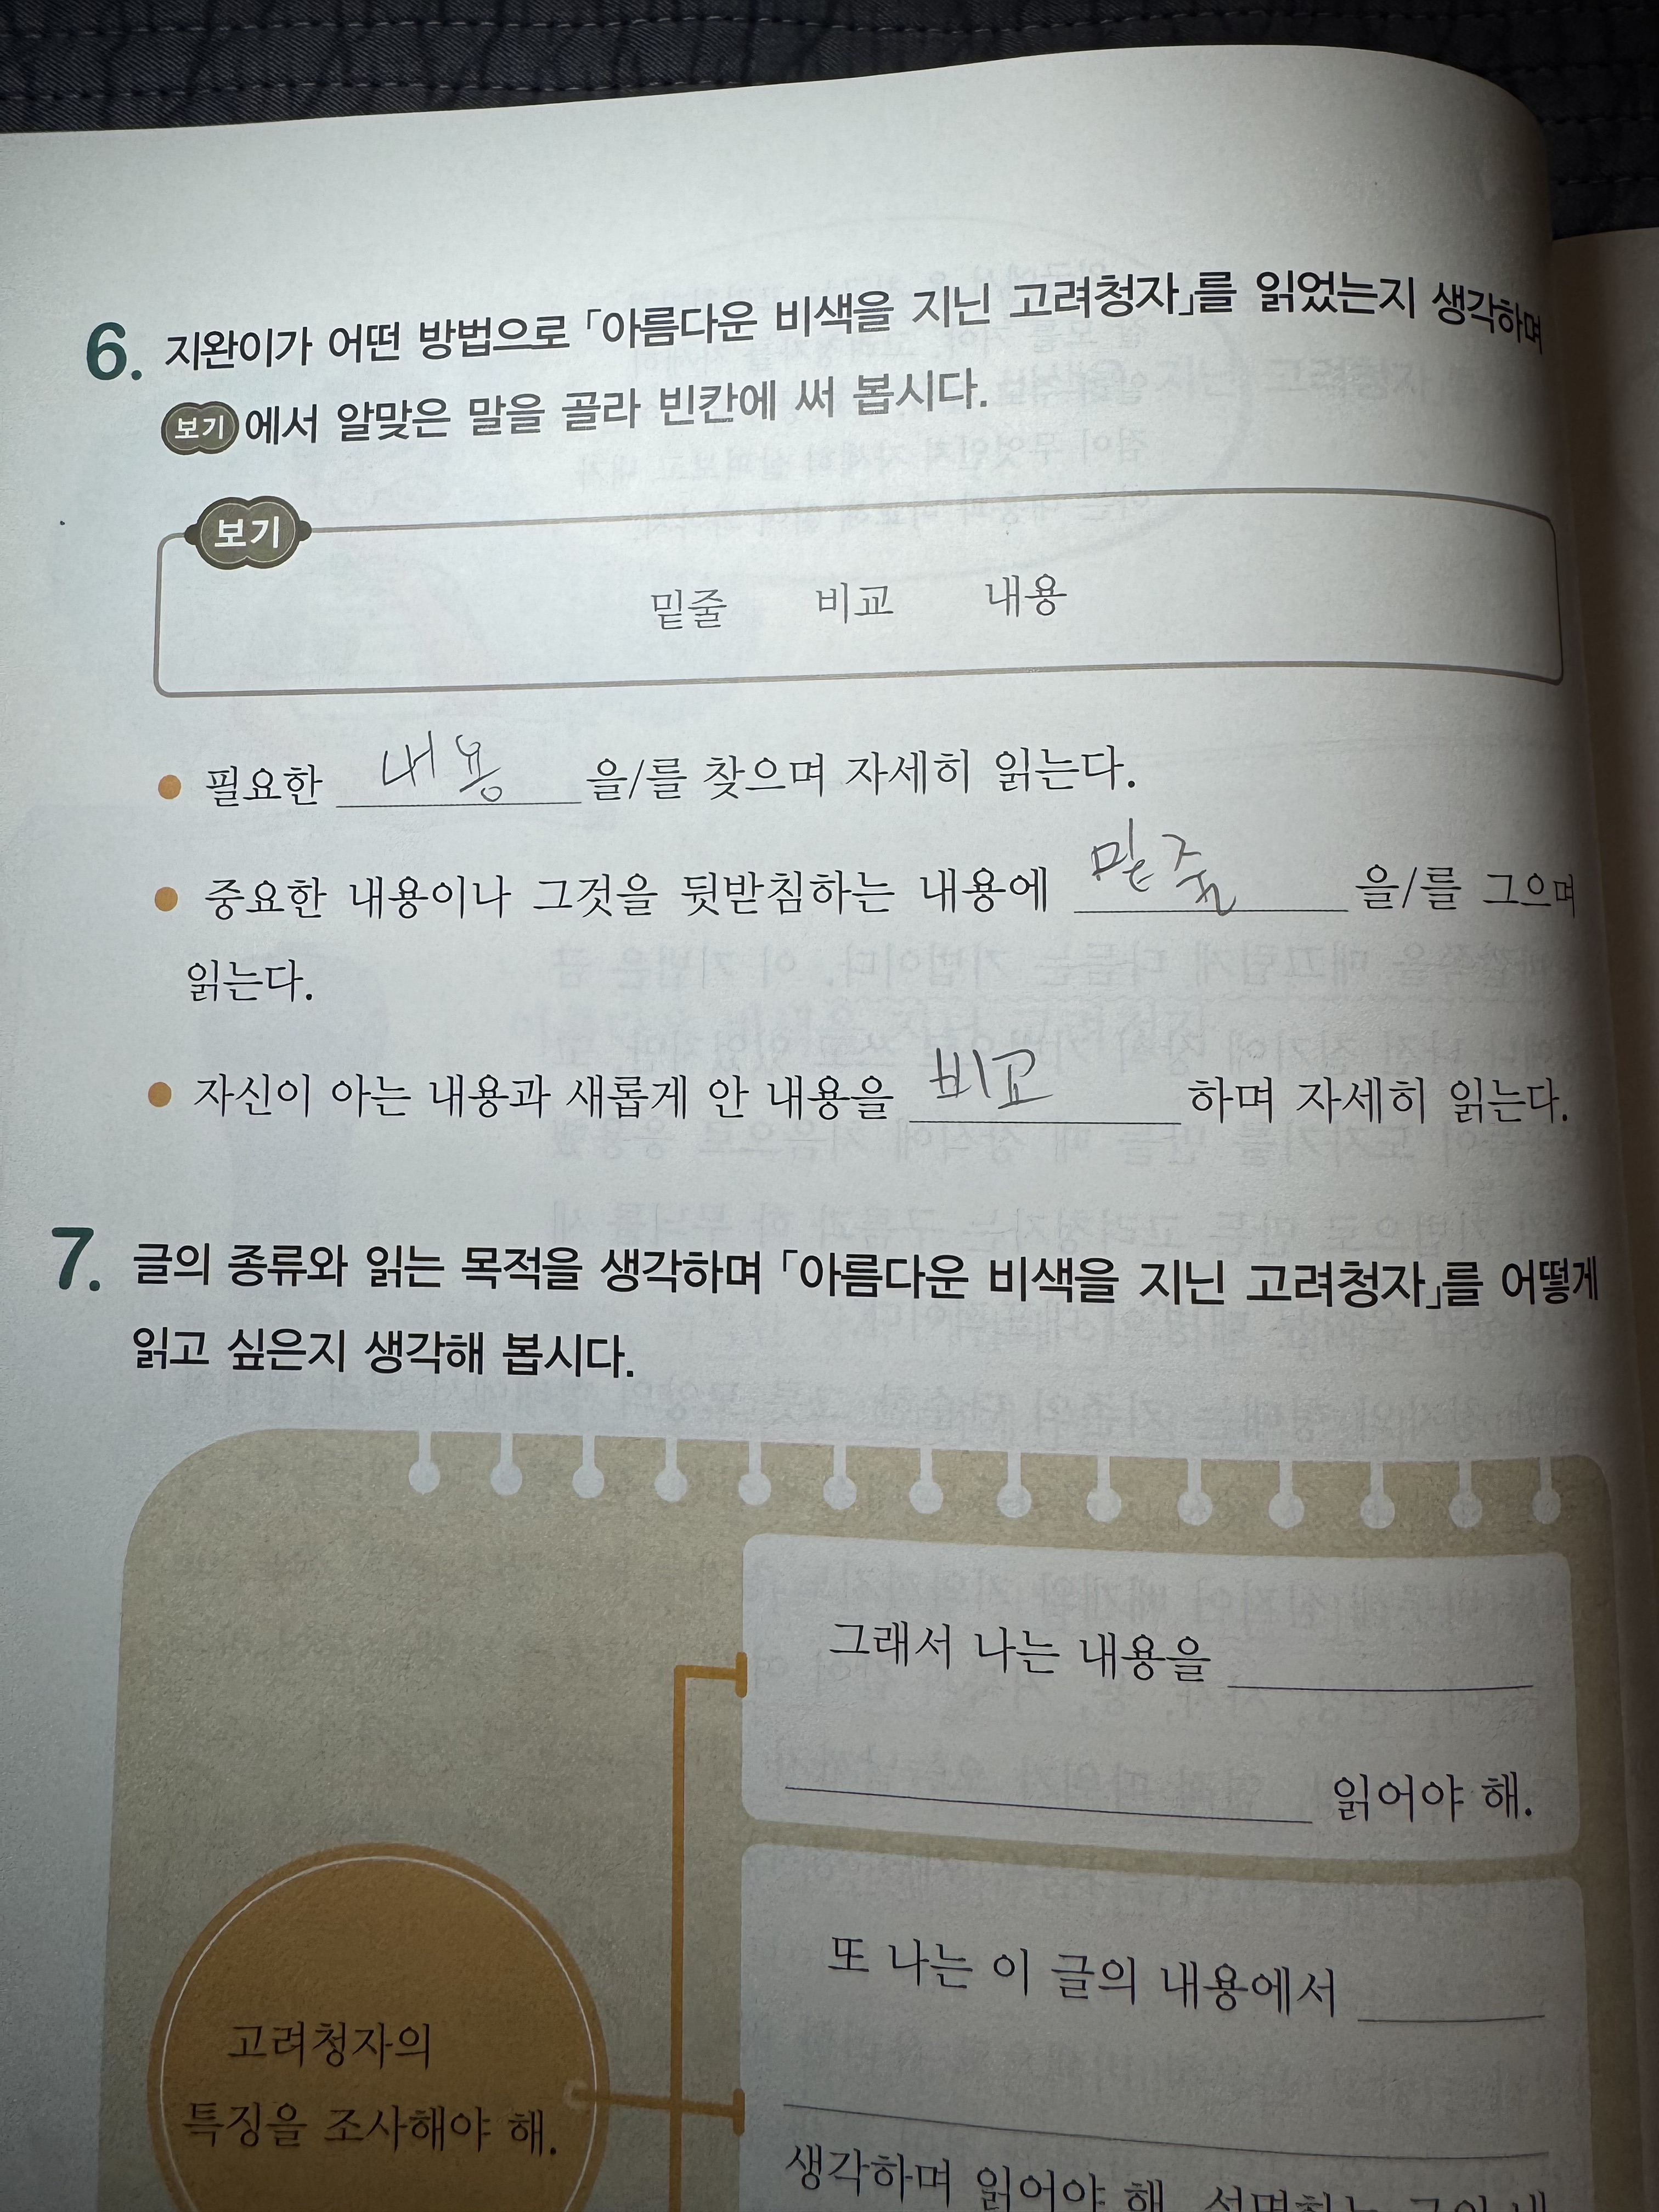 6. 지완이가 어떤 방법으로 「아름다운 비색을 지닌 고려청자」를 읽었는지 생각하며
보기에서 알맞은 말을 골라 빈칸에 써 봅시다.
보기
밑줄 비교 내용
필요한 내용 을/를 찾으며 자세히 읽는다.
중요한 내용이나 그것을 뒷받침하는 내용에 밑줄 을/를 그으며
읽는다.
자신이 아는 내용과 새롭게 안 내용을 비교 하며 자세히 읽는다.
7. 글의 종류와 읽는 목적을 생각하며 「아름다운 비색을 지닌 고려청자」를 어떻게
읽고 싶은지 생각해 봅시다.
그래서 나는 내용을
읽어야 해.
또 나는 이 글의 내용에서
고려청자의
특징을 조사해야 해.
생각하며 읽어야 해.